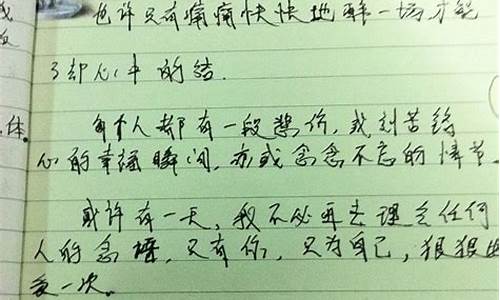 也许只有痛痛快快地醉一场才能
了却心中的结.
体.
每个人都有一段悲伤，或刻苦铭
心的幸福瞬间，亦或念念不忘的情节.
或许有一天，我不必再去理会任何
人的念，只有你，只为自己，狠狠地
爱一次。